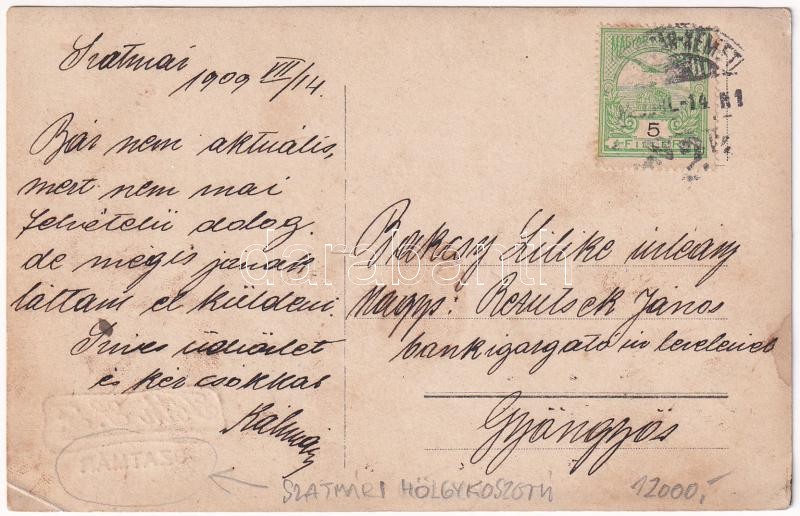 Szatmár
1909 VII/14.
Bár nem aktuális,
mert nem mai
felvételű dolog.
de mégis jónak
láttam el küldeni.
Szives üdvözlet
és kéz csókkal
Kálmán
MAGYAR
5
FILLÉR
-14
Bakssy Lilike úrleány
Nagys: Rezutsek János
bankigazgató úr levelével
Gyöngyös
SZATMÁRI HÖLGYKOSZORÚ
12000,-
darabanth